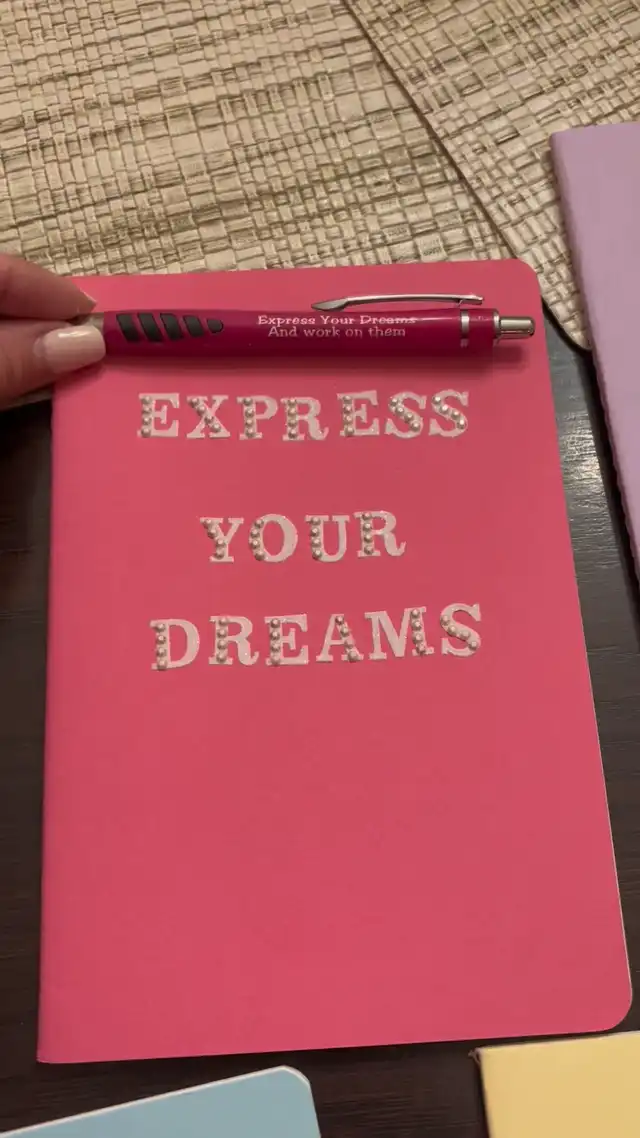 Express Your Dreams
And work on them
EXPRESS
YOUR
DREAMS